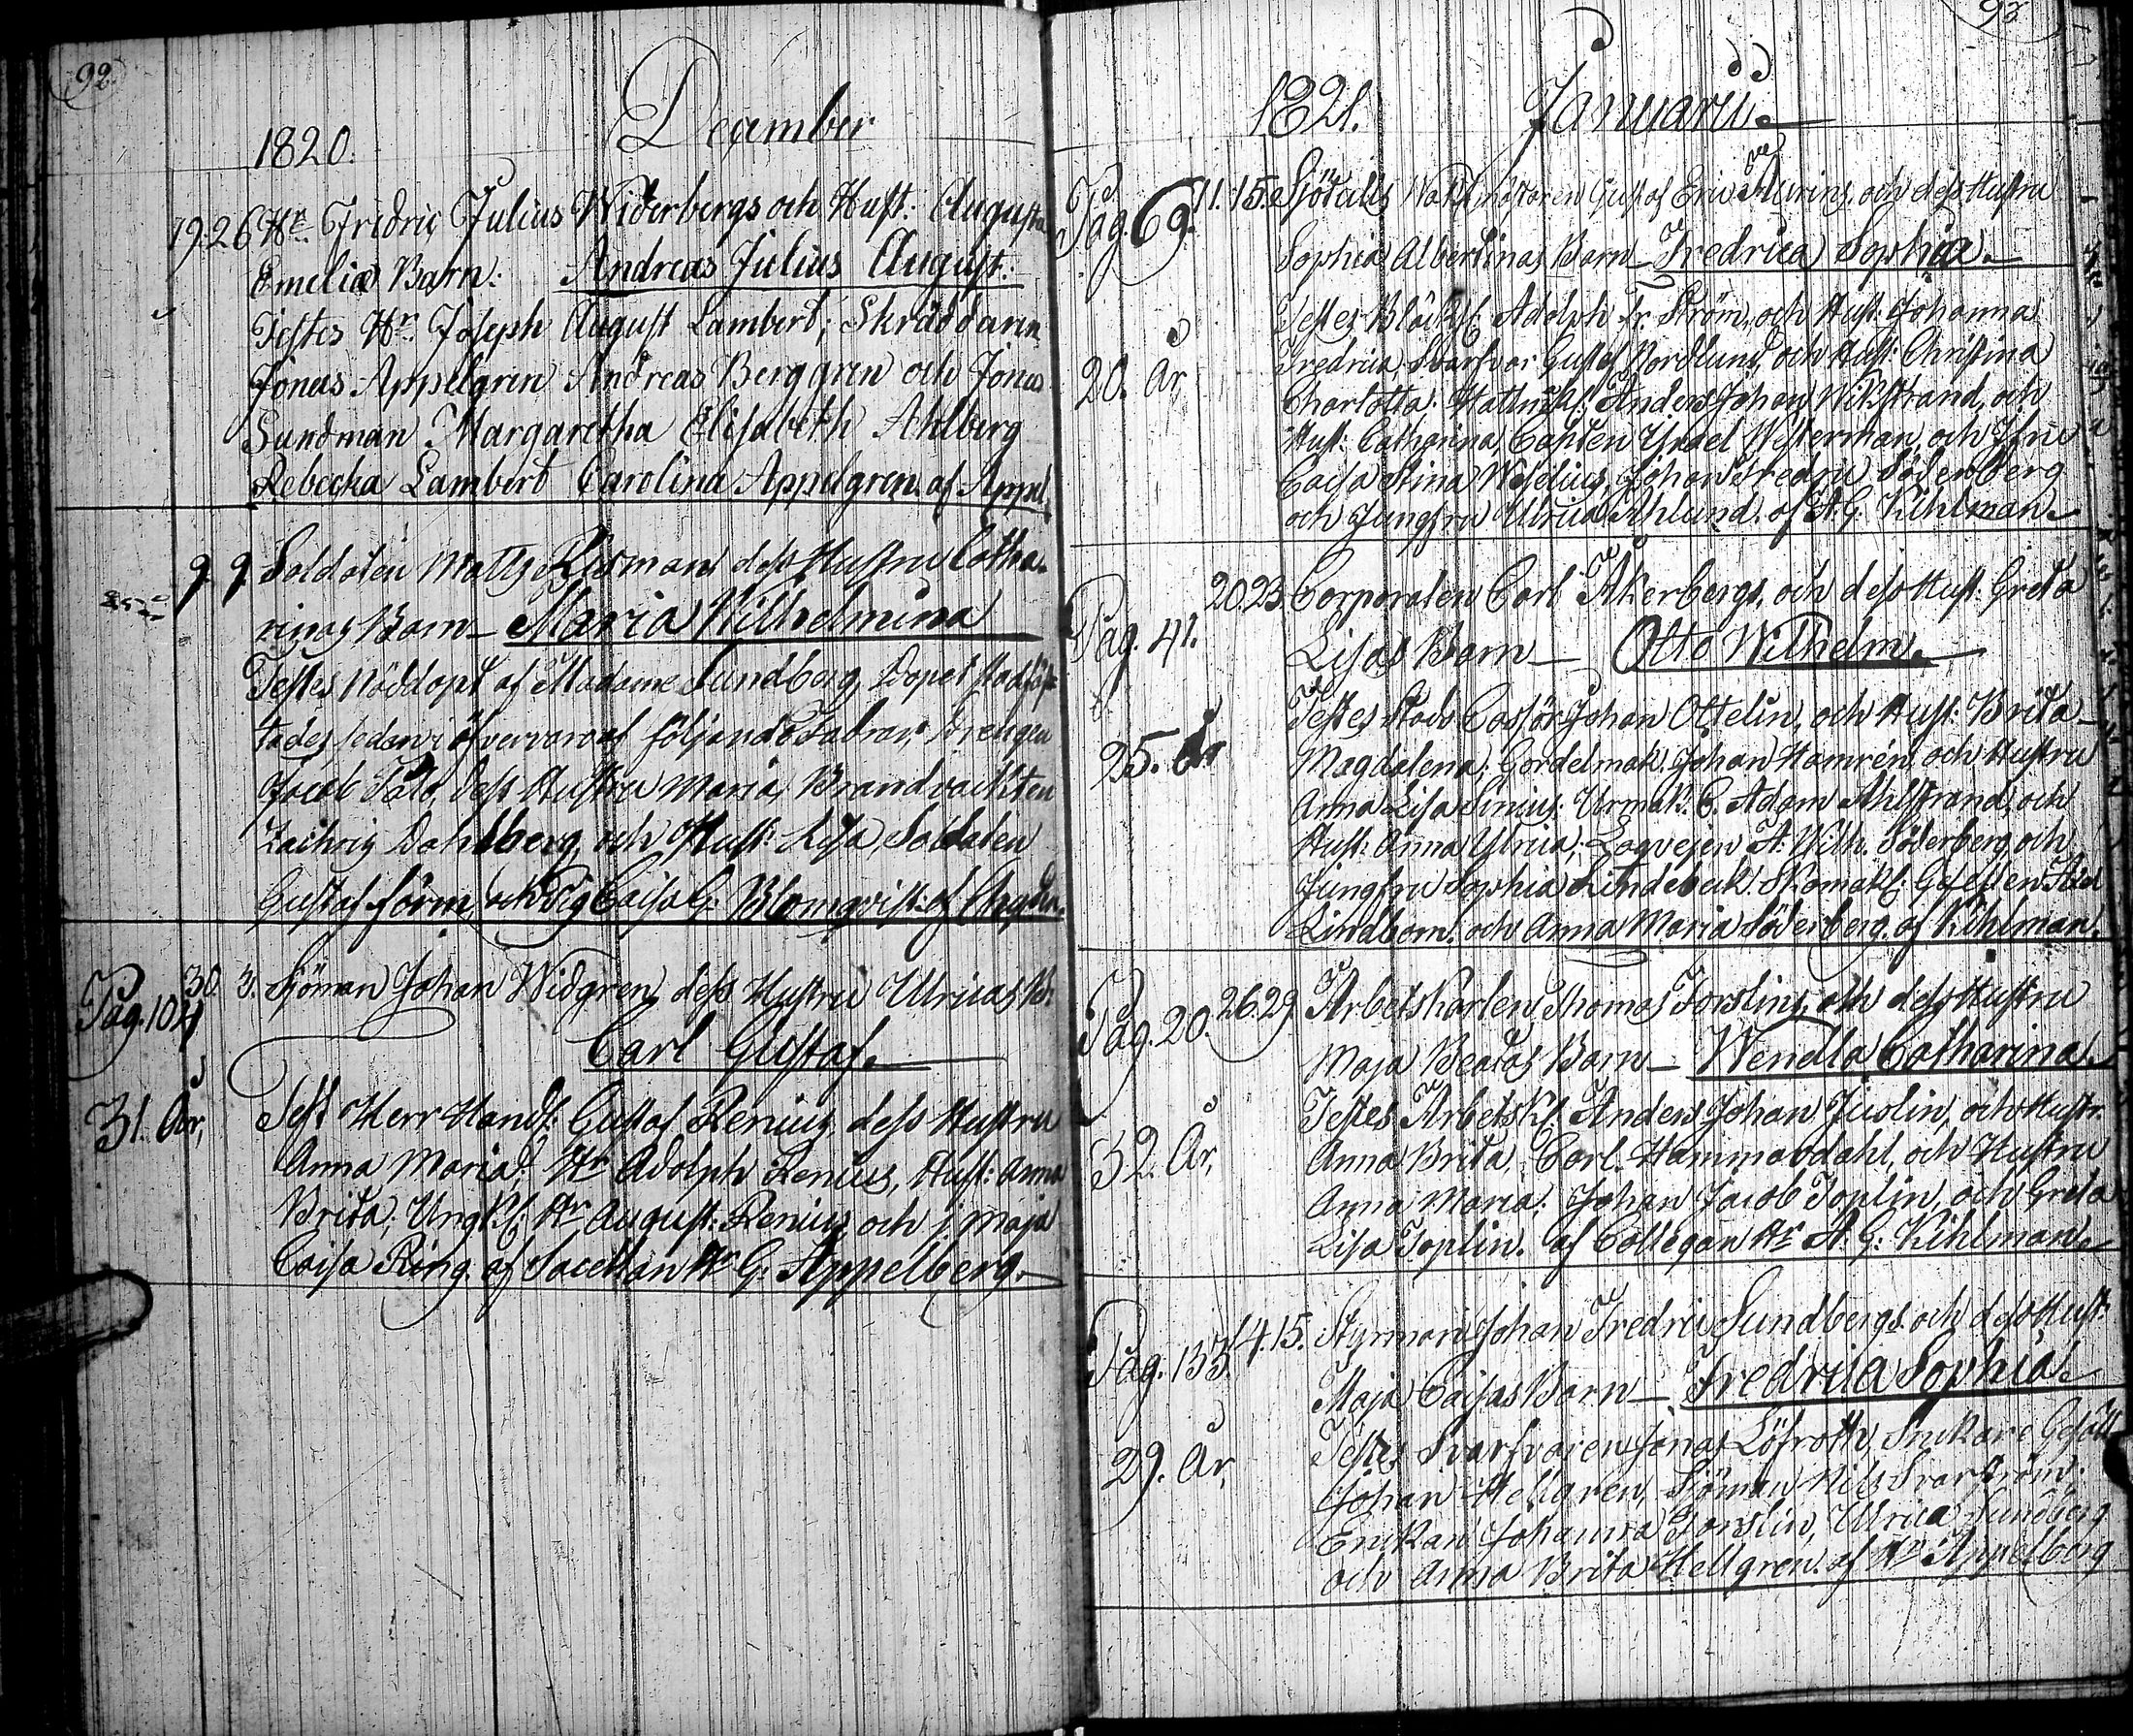 92.
1820. December
19. 26 Hr. Fridric Julius Widerbergs och Hust: Augusta
Emelias Barn: Andreas Julius August.
Testes Hr. Joseph August Lambert; Skräddaren
Jonas Appelgren Andreas Berggren och Jonas
Sundman Margaretha Elisabeth Ahlberg
Rebecka Lambert Carolina Appelgren. af Appel.
9. 9. Soldaten Matts Risman dess Hustru Catha-
rinas Barn — Maria Wilhelmina
Testes Nöddöpt af Madame Sundberg, Dopet stadfäs-
tades sedan i öfvervaro af följande Fadrar, Drengen
Jacob dess Hustru Maria, Brandvackten
Dahlberg och Hust: Lisa, Soldaten
Gustaf Form och Pig Caisa G: Blomqvist. af
Pag. 104 30. 3. Sjöman Johan Widgren dess Hustru Ulricas B:
Carl Gustaf.
31. År, Test Herr Handl: Gustaf Renius, dess Hustru
Anna Maria, Hr Adolph Renius, Hust: Anna
Brita; Ungk: Hr August Renius och j: Maja
Caisa Ring. af Sacellan Hr G: Appelberg.
93
1821. Januarii.
Pag. 69. 11. 15. Sjötulls Waktmästaren Gustaf Eric och dess Hustru
Sophia Albertinas Barn — Fredrica Sophia.
Testes Adolph Fr. Ström, och Hust: Johanna
20. År, Fredrica, Svarfvar Gustaf Nordlund, och Hust: Christina
Charlotta. Anders Johan Wikstrand, och
Hust: Catharina, Israel Westerman, och Jfru
Caisa Stina Johan Fredric Söderberg
och Jungfru Ulrica Åhlund. af A. G. Kihlman.
Pag. 41. 20. 23. Corporalen Carl Åkerbergs, och dess Hust: Greta
Lisas Barn — Otto Wilhelm.
Testes Stads Cassör Johan Ottelin, och Hust: Brita
25. År Magdalena; Gördelmak. Johan Hamrén, och Hustru
Anna Lisa Urmak: C. Adam Ahlstrand, och
Hust: Anna Ulrica; A: Wilh. Söderberg, och
Jungfru Sophia Lindebeck. Skomak: Gesellen
Lindbom. och Anna Maria Söderberg. af Kihlman.
Pag. 20. 26. 29. Arbetskarlen Thomas Forslins, och dess Hustru
Maja Beatas Barn — Wendla Catharina.
Testes Arbetsk: Anders Johan Juslin, och Hustr.
32. År, Anna Brita, Carl Hammardahl, och Hustru
Anna Maria; Johan Jacob Toplin, och Greta
Lisa Toplin. af Collegan Hr A. G: Kihlman.
Pag. 133. 14. 15. Styrman Johan Fredric Sundbergs och dess Hust:
Maja Caisas Barn — Fredrica Sophia.
Testes Svarfvaren Jonas Löfroth, Snickare Gesäll
29. År, Johan Hellgren, Sjöman Nils
Enckan Johanna Forslin, Ulrica Sundberg
och Anna Brita Hellgren. af Hr Appelberg